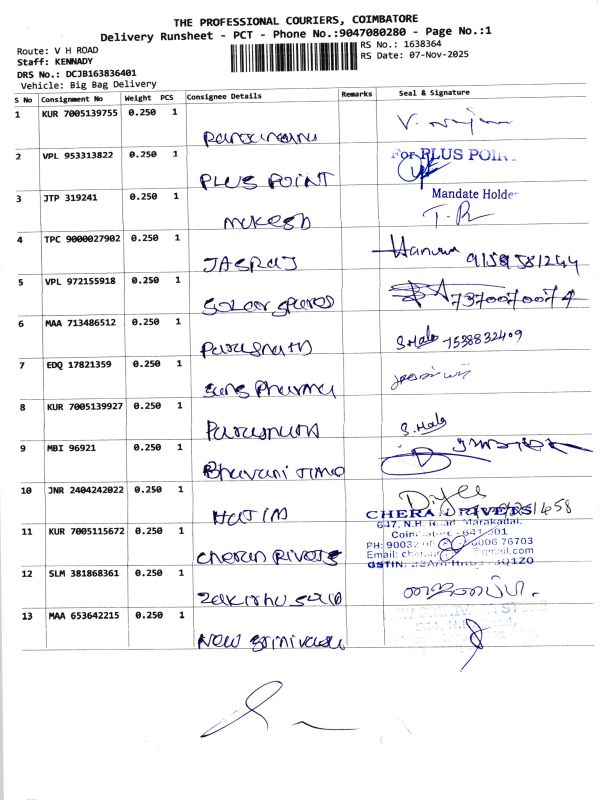 THE PROFESSIONAL COURIERS, COIMBATORE
Delivery Runsheet - PCT - Phone No.:9047080280 - Page No.:1
Route: V H ROAD
Staff: KENNADY
DRS No.: DCJB163836401
Vehicle: Big Bag Delivery
RS No.: 1638364
RS Date: 07-Nov-2025
S No Consignment No Weight PCS Consignee Details Remarks Seal & Signature
1 KUR 7005139755 0.250 1
2 VPL 953313822 0.250 1 PLUS POINT For PLUS POINT
Mandate Holder
3 JTP 319241 0.250 1 mukesh T.R
4 TPC 9000027902 0.250 1 JASRAJ
5 VPL 972155918 0.250 1 7370070074
6 MAA 713486512 0.250 1 Parasnath S.Hals 7538832409
7 EDQ 17821359 0.250 1 Suns Pharma
8 KUR 7005139927 0.250 1 Parasnath S.Hals
9 MBI 96921 0.250 1 Bhavani
10 JNR 2404242022 0.250 1
CHERAN RIVETS
647, N.H. Road, Marakadai,
Coimbatore - 641 001
11 KUR 7005115672 0.250 1 cheran Rivets
12 SLM 381868361 0.250 1
13 MAA 653642215 0.250 1 New Srinivasa